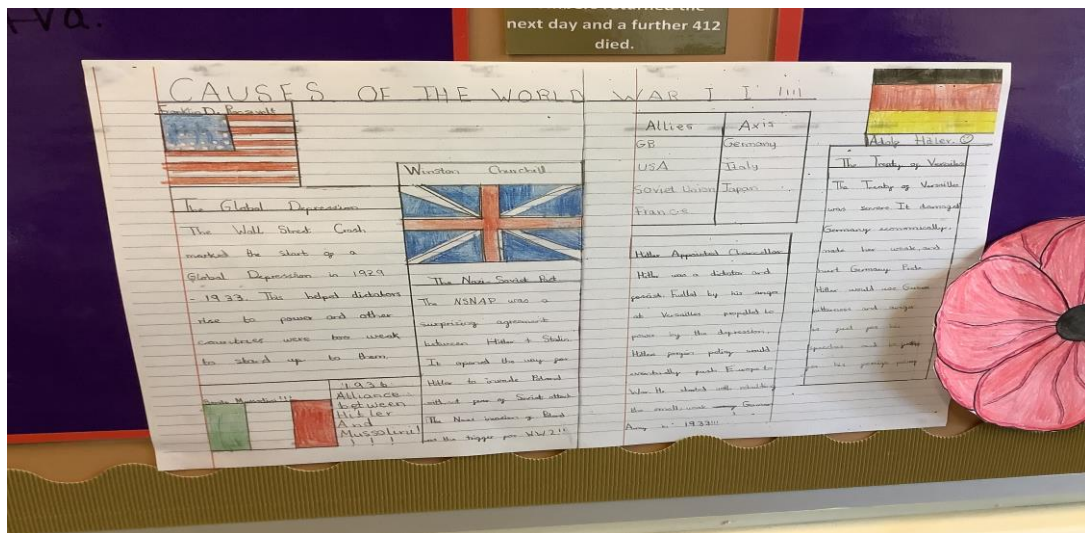 next day and a further 412
died.
CAUSES OF THE WORLD WAR II !!!!
Winston Churchill
The Global Depression
The Wall Street Crash
marked the start of a
Global Depression in 1929
- 1933. This helped dictators
rise to power and other
countries were too weak
to stand up to them.
1936
Alliance
between
Hitler
And
Mussolini
The Nazi Soviet Pact
The NSNAP was a
surprising agreement
between Hitler + Stalin
It opened the way for
Hitler to invade Poland
without fear of Soviet attack
The Nazi invasion of Poland
was the trigger for WW2!!!
Allies Axis
GB Germany
USA Italy
Soviet Union Japan
France
Hitler Appointed Chancellor
Hitler was a dictator and
fascist. Fuelled by his anger
at Versailles propelled to
power by the depression,
Hitler foreign policy would
eventually push Europe to
War. He started with rebuilding
the small, weak German
Army in 1933!!!
Adolf Hitler
The Treaty of Versailles
The Treaty of Versailles
was severe It damaged
Germany economically,
made her weak, and
hurt Germany Pride
Hitler would use German
bitterness and anger
as fuel for his
speeches and
for his foreign policy